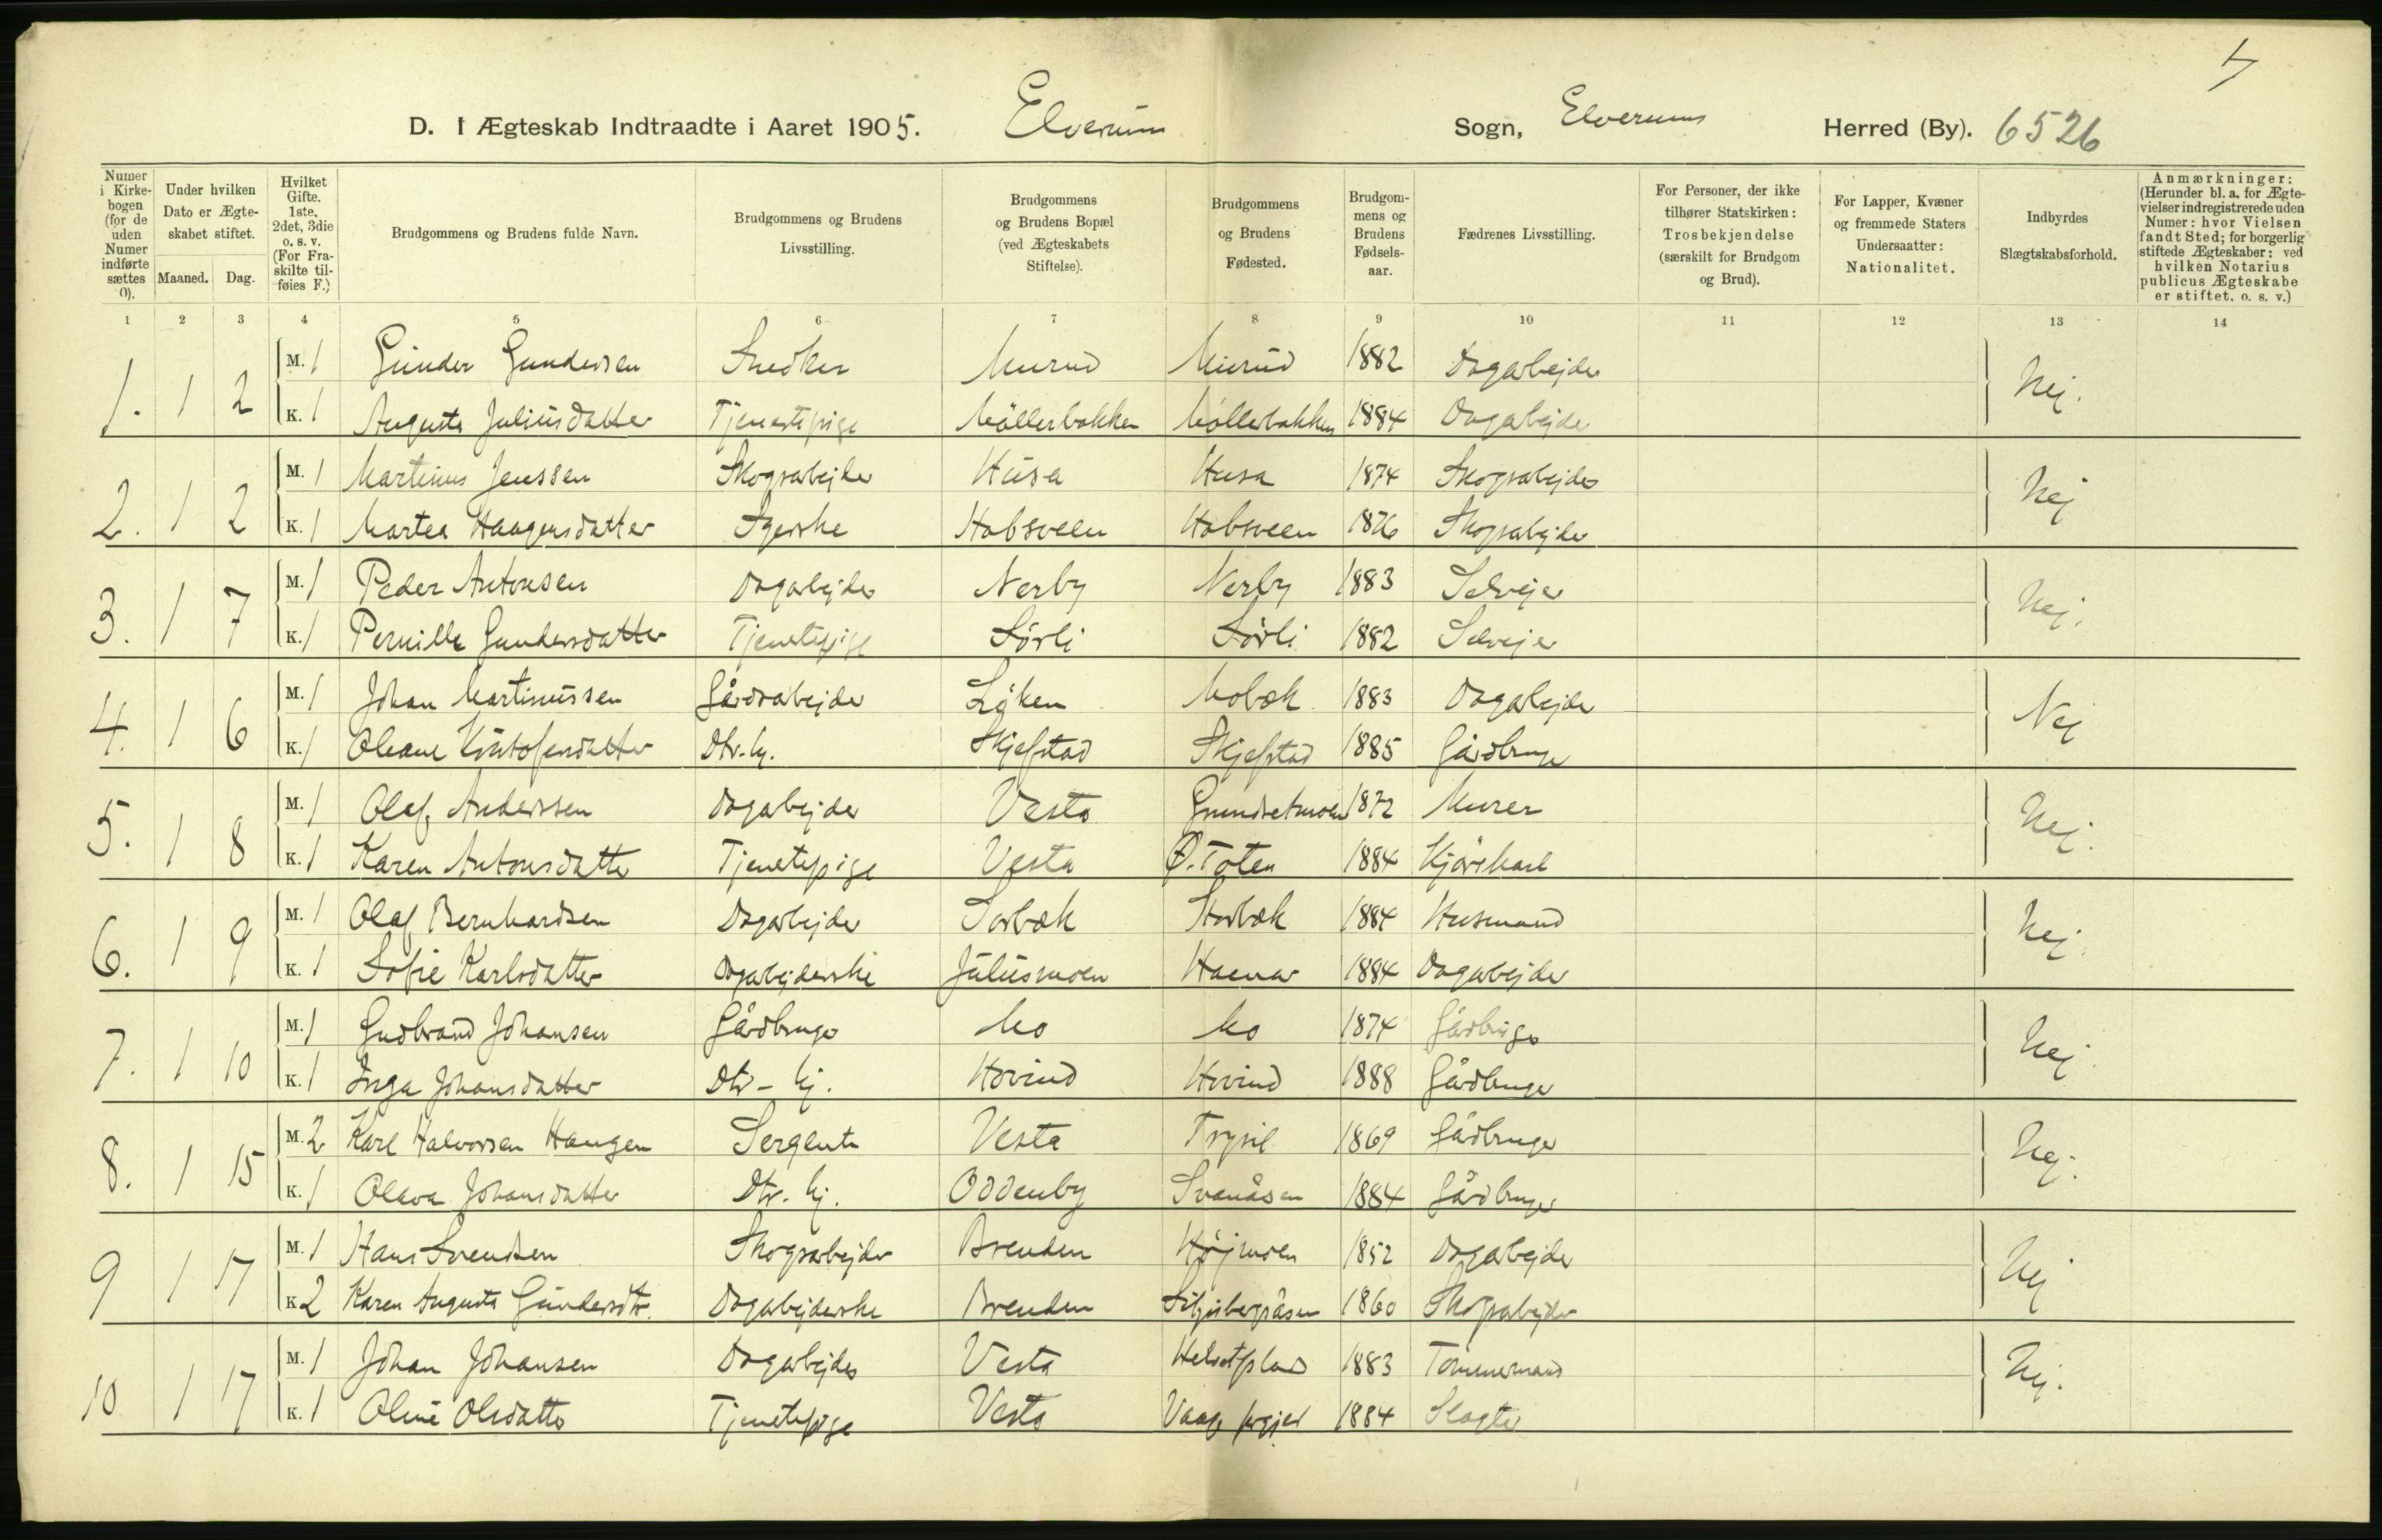 4
D. I Ægteskab Indtraadte i Aaret 1905. Elverum Sogn, Elverums Herred (By). 6526
Numer i Kirkebogen (for de uden Numer indførte sættes 0).
Under hvilken Dato er Ægteskabet stiftet.
Maaned. Dag.
Hvilket Gifte. 1ste, 2det, 3die o. s. v. (For Fraskilte tilføies F.)
Brudgommens og Brudens fulde Navn.
Brudgommens og Brudens Livsstilling.
Brudgommens og Brudens Bopæl (ved Ægteskabets Stiftelse).
Brudgommens og Brudens Fødested.
Brudgommens og Brudens Fødselsaar.
Fædrenes Livsstilling.
For Personer, der ikke tilhører Statskirken: Trosbekjendelse (særskilt for Brudgom og Brud).
For Lapper, Kvæner og fremmede Staters Undersaatter: Nationalitet.
Indbyrdes Slægtskabsforhold.
Anmærkninger: (Herunder bl. a. for Ægtevielser indregistrerede uden Numer: hvor Vielsen fandt Sted; for borgerlig stiftede Ægteskaber: ved hvilken Notarius publicus Ægteskabe er stiftet, o. s. v.)
1 2 3 4 5 6 7 8 9 10 11 12 13 14
1. 1 2 M. 1 Gunder Gundersen Snedker Murud Murud 1882 Dagarbejder Nej.
K. 1 Augusta Juliusdatter Tjenestepige Möllerbakken Möllerbakken 1884 Dagarbejder
2. 1 2 M. 1 Martinus Jenssen Skogsarbejder Husa Husa 1874 Skogsarbejder Nej
K. 1 Martea Haagensdatter Syerske Habsveen Habsveen 1876 Skogsarbejder
3. 1 7 M. 1 Peder Antonsen Dagarbejder Nerby Nerby 1883 Selvejer Nej.
K. 1 Pernille Gundersdatter Tjenestepige Sörli Sörli 1882 Selvejer
4. 1 6 M. 1 Johan Martinussen Gårdsarbejder Löken Mobæk 1883 Dagarbejder Nej
K. 1 Oleane Kristofersdatter Dtr. hj. Skjefstad Skjefstad 1885 Gårdbruger
5. 1 8 M. 1 Olaf Anderssen Dagarbejder Vesta Grundsetmoen 1872 Murer Nej.
K. 1 Karen Antonsdatter Tjenestepige Vesta Ø. Toten 1884 Kjörekarl
6. 1 9 M. 1 Olaf Bernhardsen Dagarbejder Sorbæk Storbæk 1884 Husmand Nej.
K. 1 Sofie Karlsdatter Dagarbejderske Juliusmoen Hamar 1884 Dagarbejder
7. 1 10 M. 1 Gudbrand Johansen Gårdbruger Mo Mo 1874 Gårdbruger Nej.
K. 1 Inga Johansdatter Dtr - hj. Hovind Hovind 1888 Gårdbruger
8. 1 15 M. 2 Karl Halvorsen Haugen Sergent Vesta Trysil 1869 Gårdbruger Nej.
K. 1 Olava Johansdatter Dtr. hj. Oddenby Svenåsen 1884 Gårdbruger
9 1 17 M. 1 Hans Svendsen Skogsarbejder Brenden Höjmoen 1852 Dagarbejder Nej
K. 2 Karen Augusta Gundersdtr. Dagarbejderske Brenden 1860 Skogsarbejder
10 1 17 M. 1 Johan Johansen Dagarbejder Vesta Helsetplads 1883 Tömmermand Nej.
K. 1 Oline Olsdatter Tjenestepige Vesta Vaage prgjed 1884 Slagter